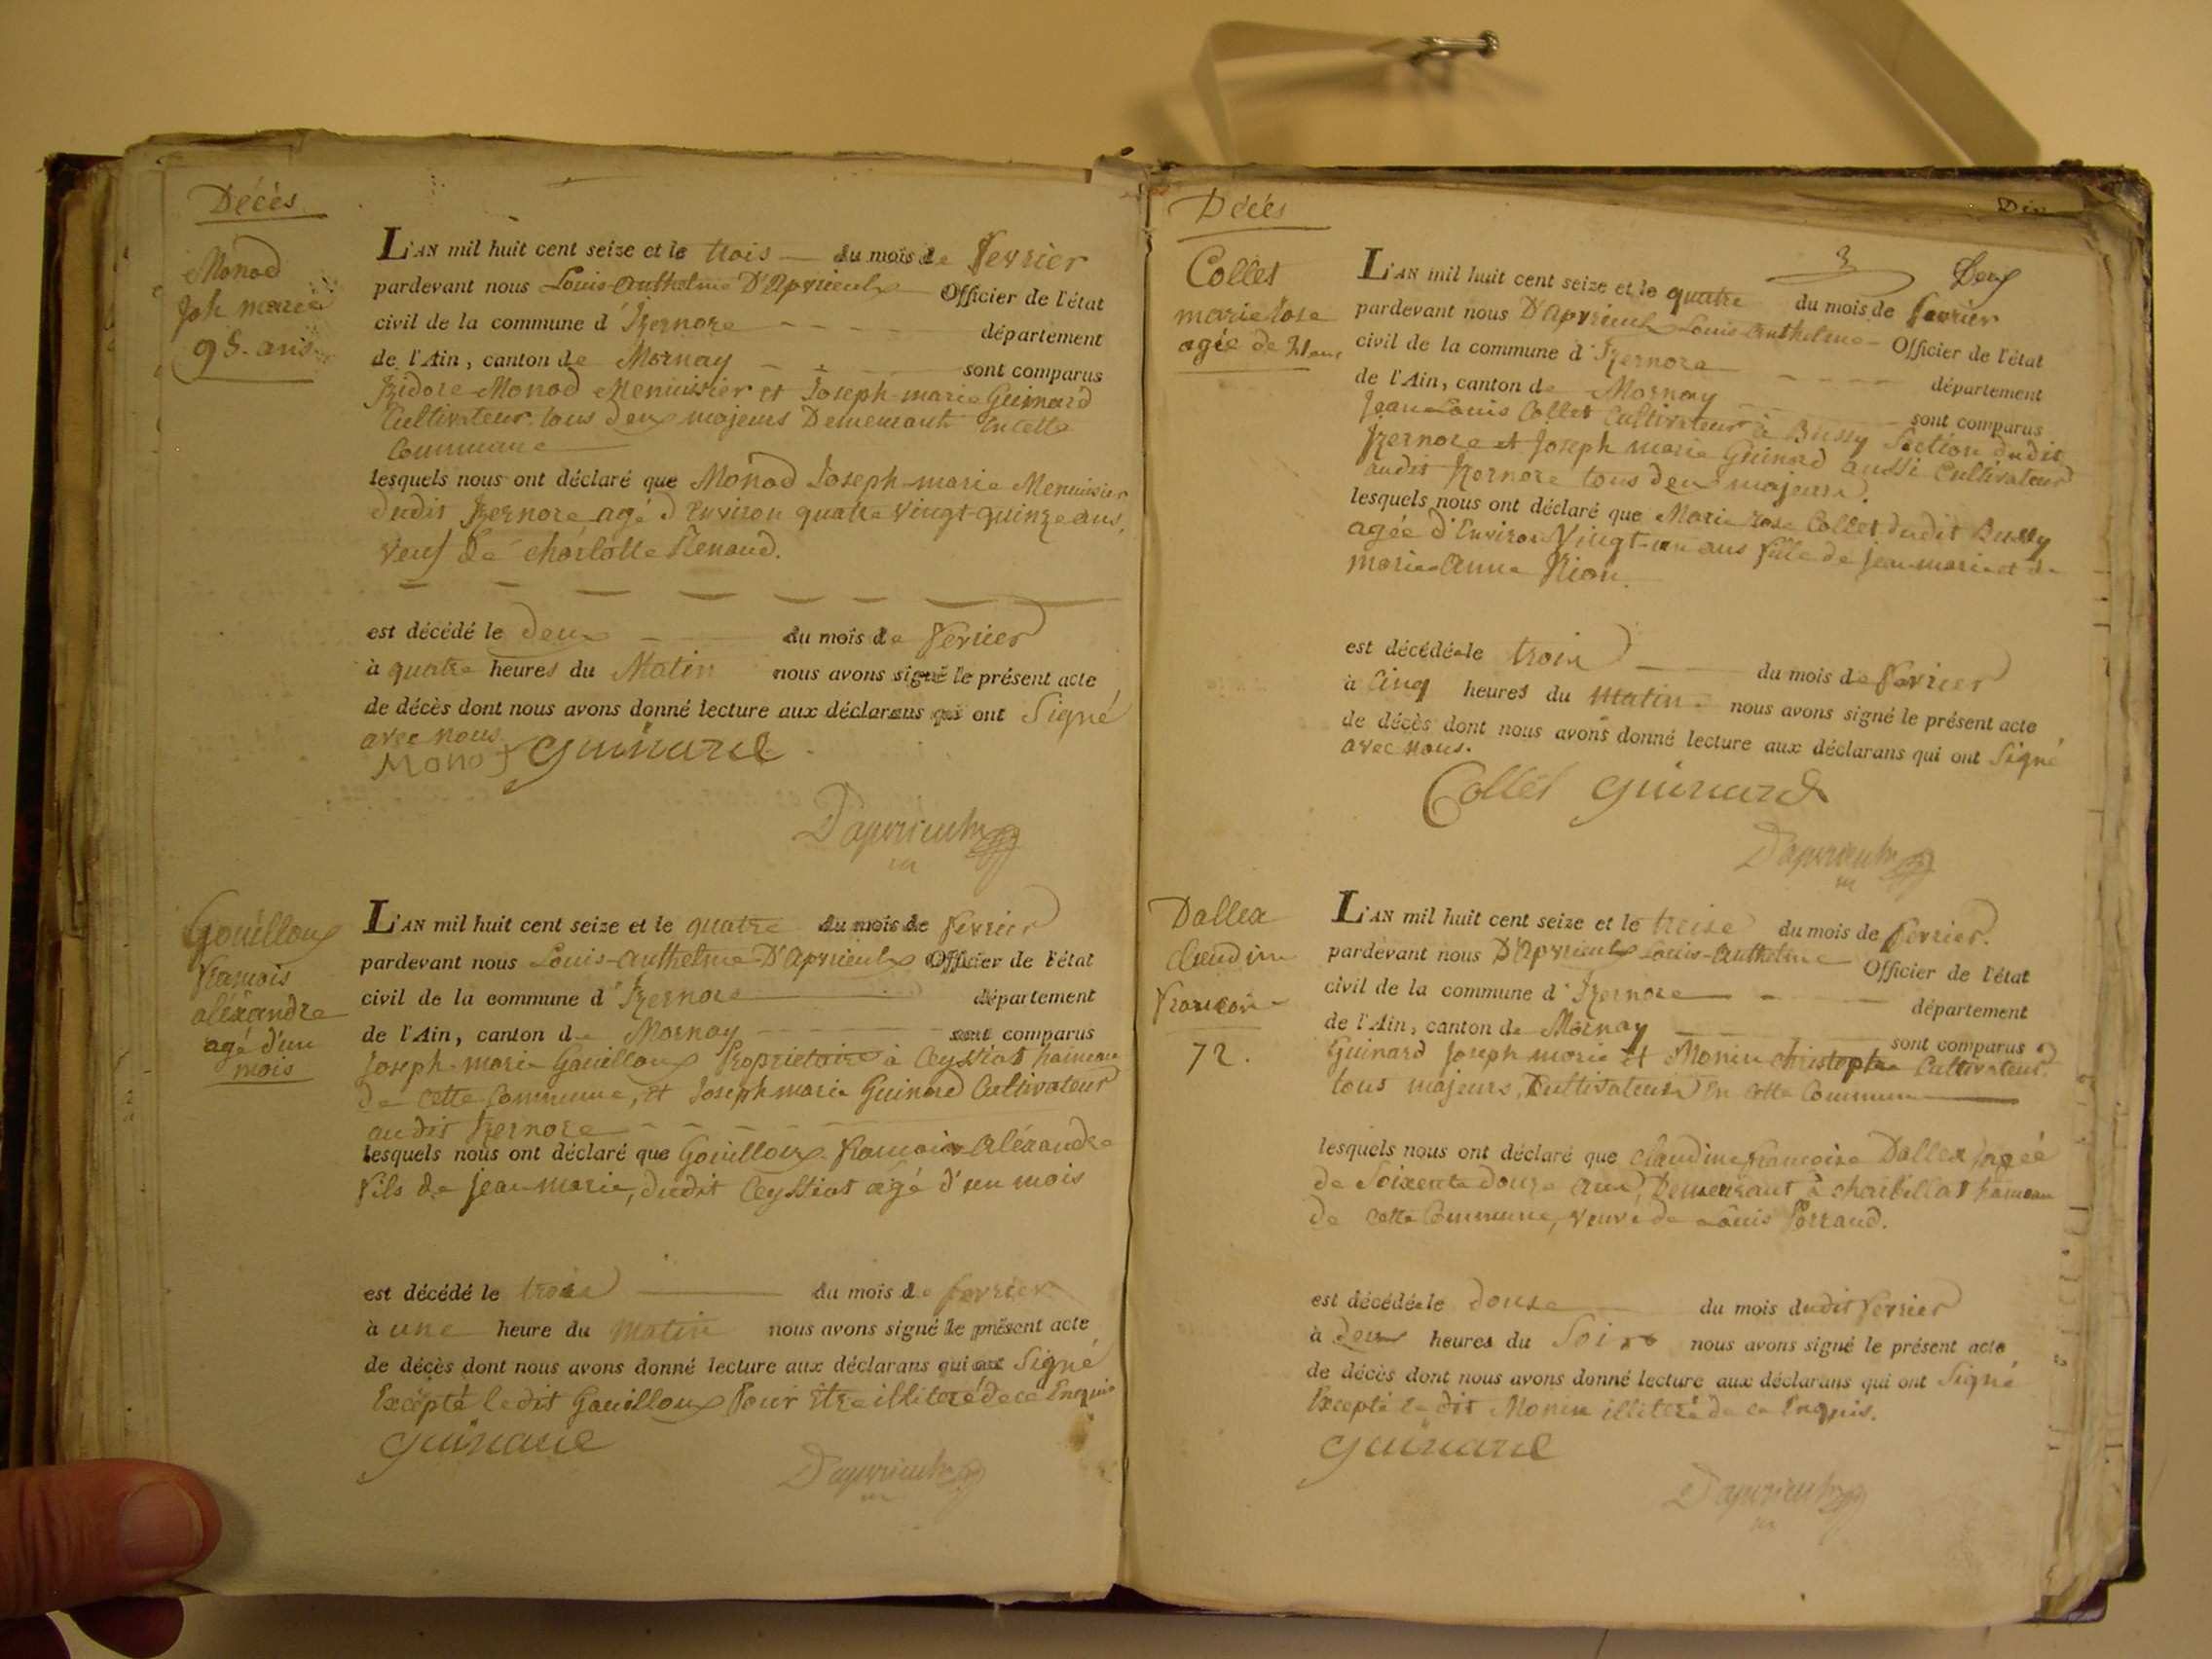 Décès
Monod
Jph marie
95. ans
L'AN mil huit cent seize et le trois du mois de fevrier
pardevant nous Louis-Anthelme D'Apvrieulx Officier de l'état
civil de la commune d'Izernore département
de l'Ain, canton de Mornay sont comparus
Izidore Monod Menuisier et Joseph-marie Guinard
Cultivateur tous deux majeurs Demeurant en cette
Commune
lesquels nous ont déclaré que Monod Joseph-marie Menuisier
dudit Izernore agé d'Environ quatre vingt-quinze ans,
veuf de charlotte Renaud.
est décédé le deux du mois de fevrier
à quatre heures du Matin nous avons signé le présent acte
de décès dont nous avons donné lecture aux déclarans qui ont Signé
avec nous
Monod Guinard
D'apvrieulx
Gouilloux
francois
aléxandre
agé d'un
mois
L'AN mil huit cent seize et le quatre du mois de fevrier
pardevant nous Louis-Anthelme D'Apvrieulx Officier de l'état
civil de la commune d'Izernore département
de l'Ain, canton de Mornay sont comparus
Joseph-marie Gouilloux Propriétaire à Ceyssiat hameau
de cette Commune, et Joseph marie Guinard Cultivateur
audit Izernore
lesquels nous ont déclaré que Gouilloux francois Aléxandre
fils de Jean-marie, dudit Ceyssiat agé d'un mois
est décédé le trois du mois de fevrier
à une heure du matin nous avons signé le présent acte
de décès dont nous avons donné lecture aux déclarans qui ont Signé
Excépté ledit Gouilloux Pour être illiteré de ce Enquis
Guinard
D'apvrieulx
Décès
3 Deux
Collet
marie rose
agée de 21 ans
L'AN mil huit cent seize et le quatre du mois de fevrier
pardevant nous D'Apvrieulx Louis-Anthelme Officier de l'état
civil de la commune d'Izernore département
de l'Ain, canton de Mornay sont comparus
Jean Louis Collet Cultivateur à Bussy Section dudit
Izernore et Joseph marie Guinard aussi Cultivateur
audit Izernore tous deux majeurs.
lesquels nous ont déclaré que Marie rose Collet dudit Bussy
agée d'Environ Vingt-un ans fille de Jean-marie et de
marie Anne Rion.
est décédée le trois du mois de fevrier
à Cinq heures du matin. nous avons signé le présent acte
de décès dont nous avons donné lecture aux déclarans qui ont Signé
avec nous.
Collet Guinard
D'apvrieulx
Dallex
claudine
francoise
72.
L'AN mil huit cent seize et le treize du mois de fevrier.
pardevant nous D'Apvrieulx Louis-Anthelme Officier de l'état
civil de la commune d'Izernore département
de l'Ain, canton de Mornay sont comparus
Guinard Joseph marie et Monin christophe Cultivateurs
tous majeurs, Cultivateurs en cette Commune
lesquels nous ont déclaré que Claudine francoise Dallex agée
de Soixente douze ans, Demeurant à charbillat hameau
de cette Commune, veuve de Louis Perraud.
est décédée le douze du mois dudit fevrier
à deux heures du Soir nous avons signé le présent acte
de décès dont nous avons donné lecture aux déclarans qui ont Signé
Excepté ledit Monin illiteré de ce Enquis.
Guinard
D'apvrieulx